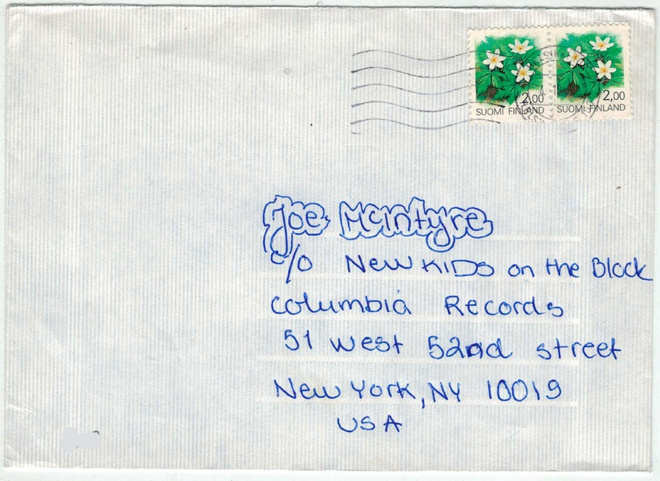 2,00
SUOMI FINLAND
2,00
SUOMI FINLAND
Joe McIntyre
c/o New KIDS on the Block
Columbia Records
51 West 52nd street
New York, NY 10019
USA